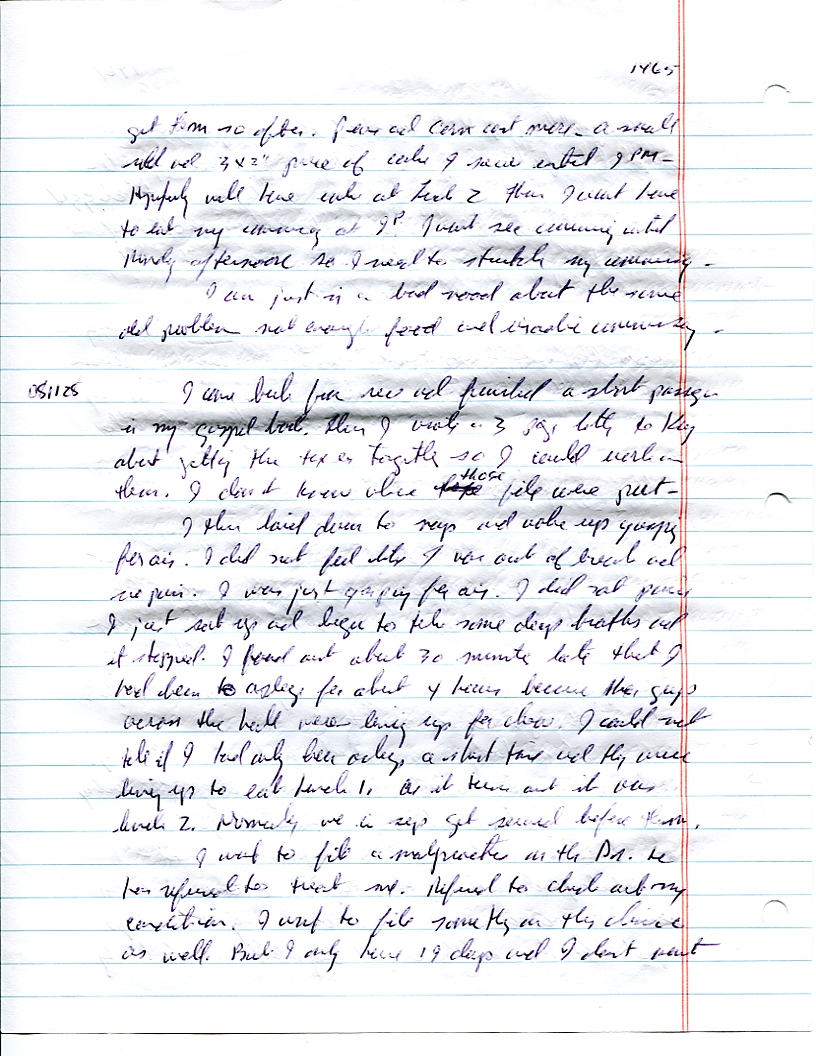 1465
get them so often. Peas and corn cost more. a small
roll and 3x2" piece of cake I save until 9 PM-
Hopefully will have cake at Lunch 2 then I wont have
to eat my commissary at 9P. I wont see commissary until
afternoon so I need to stretch my commissary.
I am just in a bad mood about the same
old problem not enough food and commissary.
051125 I came back from rec and finished a short passage
in my gospel book. Then I wrote a 3 page letter to
about getting the taxes together so I could work on
them. I don't know where those files were put-
I then laid down to nap and woke up gasping
for air. I did not feel like I was out of breath and
no pain. I was just gasping for air. I did not panic
I just sat up and began to take some deep breaths and
it stopped. I found out about 30 minutes later that I
had been asleep for about 4 hours because the guys
across the hall were lining up for chow. I could not
tell if I had only been asleep a short time and they were
lining up to eat lunch 1. As it turns out it was
lunch 2. Normally we in seg get served before them.
I want to file a malpractice on the Dr. He
has refused to treat me. Refused to check out my
condition. I want to file something on this clinic
as well. But I only have 19 days and I don't want